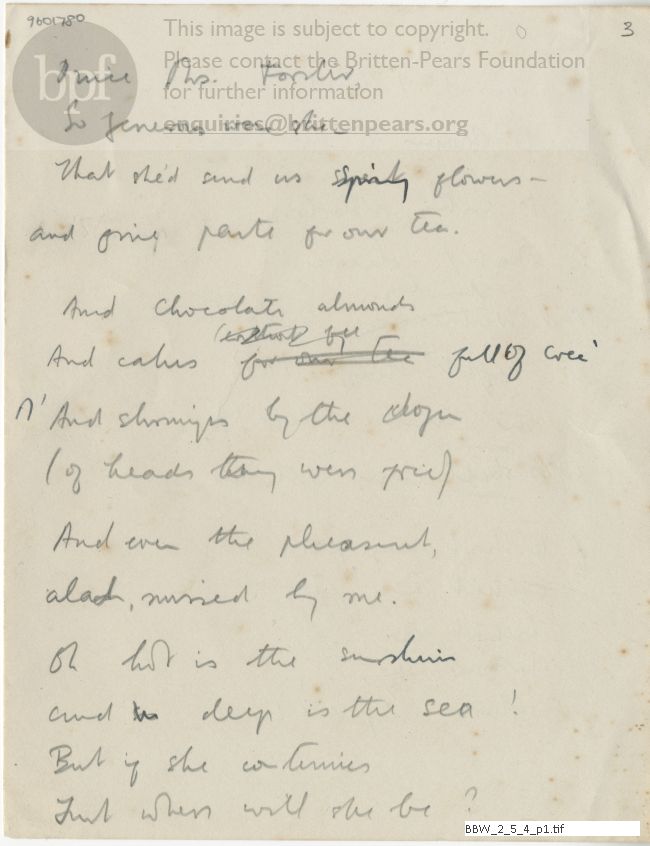 9601780
3
This image is subject to copyright.
Please contact the Britten-Pears Foundation
for further information
enquiries@brittenpears.org
bpf
Mrs. Forster,
So generous was she
That she'd send us flowers –
and pants for our tea.
And chocolate almonds
And cakes for our tea full of
And shrimps by the dozen
(of heads they were free)
And even the pheasant,
alas, missed by me.
Oh hot is the sunshine
and deep is the sea!
But if she continues
Just where will she be?
BBW_2_5_4_p1.tif